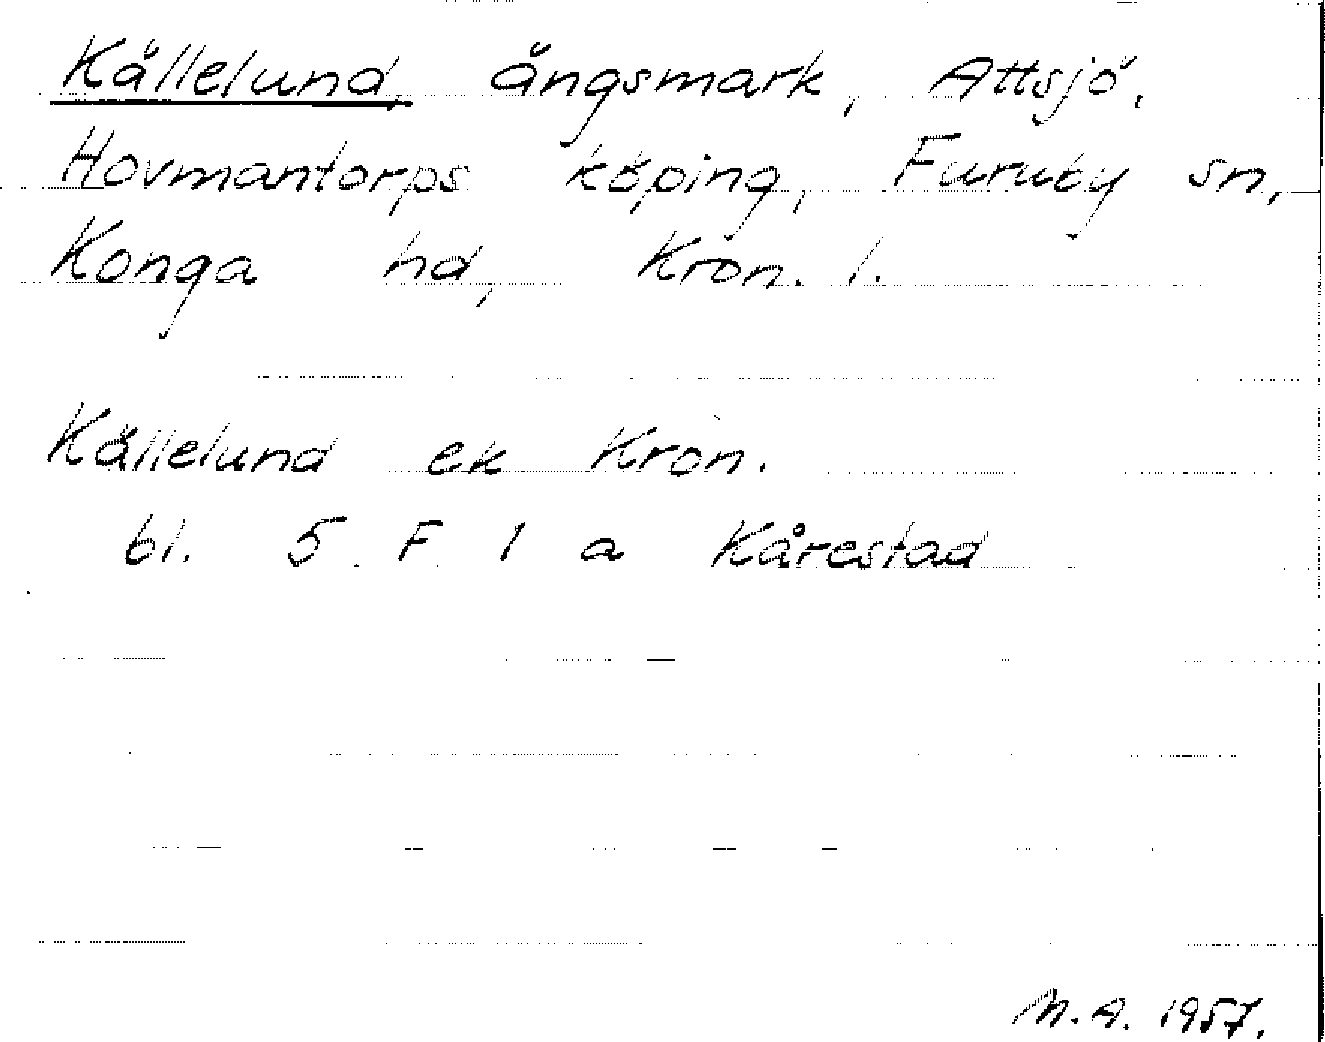 Källelund, ängsmark, Attsjö,
Hovmantorps köping, Furuby sn,
Konga hd, Kron. l.
Källelund ek Kron.
bl. 5 F 1 a Kårestad
M.A. 1957.